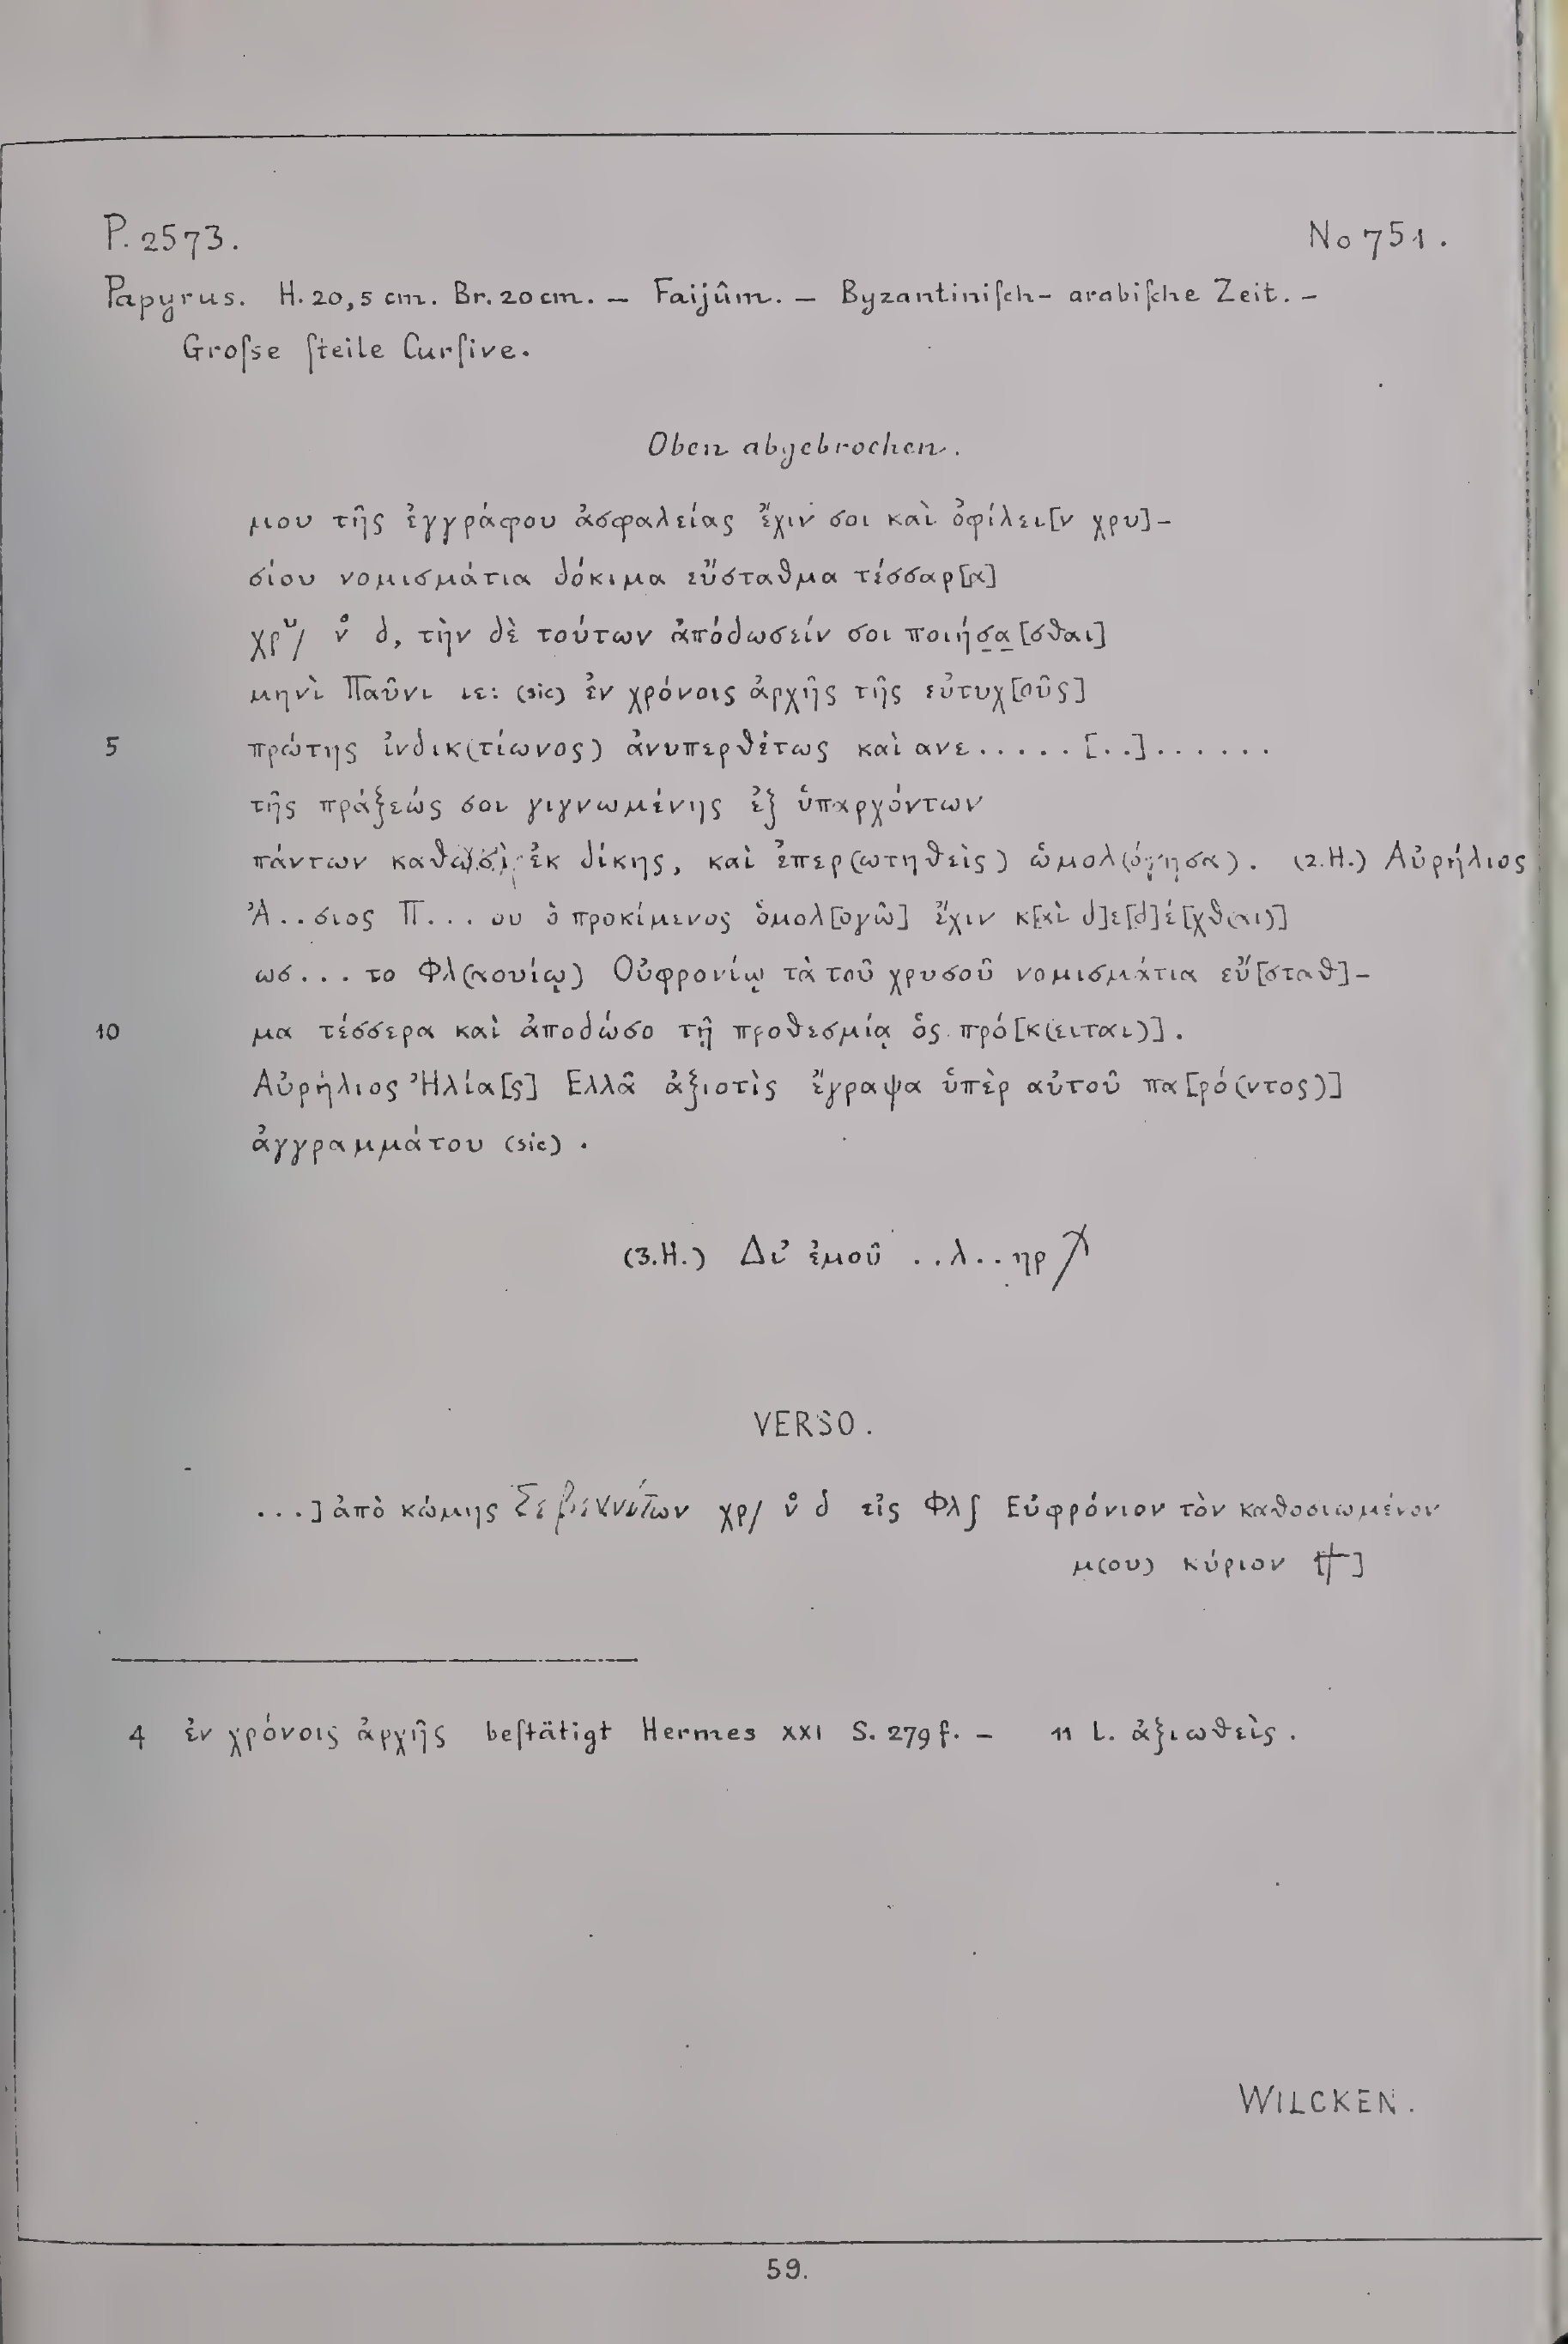 P. 2573.
No 751.
Papyrus. H. 20,5 cm. Br. 20 cm. – Faijûm. – Byzantiniſch-arabiſche Zeit. –
Groſse ſteile Curſive.
Oben abgebrochen.
μου τῆς ἐγγράφου ἀσφαλείας ἔχιν σοι καὶ ὀφίλει[ν χρυ]-
σίου νομισμάτια δόκιμα εὔσταθμα τέσσαρ[α]
χρυ/ ν̊ δ, τὴν δὲ τούτων ἀπόδωσείν σοι ποιήσ̲α̲[σθαι]
μηνὶ Παῦνι ιε: (sic) ἐν χρόνοις ἀρχῆς τῆς εὐτυχ[οῦς]
5 πρώτης ἰνδικ(τίωνος) ἀνυπερθέτως καὶ ανε.....[..]......
τῆς πράξεώς σοι γιγνωμένης ἐξ ὑπαρχόντων
πάντων ἐκ δίκης, καὶ ἐπερ(ωτηθεὶς) ὡμολ(όγησα). (2.H.) Αὐρήλιος
Ἀ..σιος Π...ου ὁ προκίμενος ὁμολ[ογῶ] ἔχιν κ[αὶ δ]ε[δ]έ[χθ(αι)]
ωσ...το Φλ(αουίῳ) Οὐφρονίῳ τὰ τοῦ χρυσοῦ νομισμάτια εὔ[σταθ]-
10 μα τέσσερα καὶ ἀποδώσο τῇ προθεσμίᾳ ὁς πρό[κ(ειται)].
Αὐρήλιος Ἠλία[ς] Ελλᾶ ἀξιοτὶς ἔγραψα ὑπὲρ αὐτοῦ πα[ρό(ντος)]
ἀγγραμμάτου (sic).
(3.H.) Δι’ ἐμοῦ ..λ..ηρ
VERSO.
...] ἀπὸ κώμης χρ/ ν̊ δ εἰς Φλʃ Εὐφρόνιον τὸν καθοσιωμένον
μ(ου) κύριον ]
4 ἐν χρόνοις ἀρχῆς beſtätigt Hermes XXI S. 279 f. – 11 L. ἀξιωθεὶς.
WILCKEN.
59.